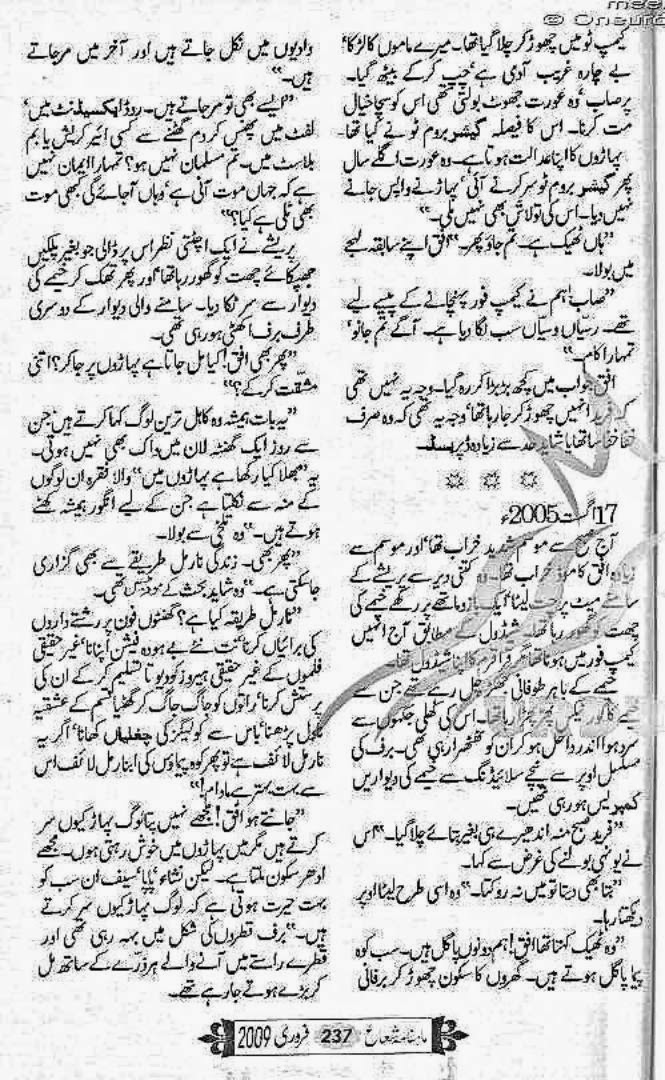 کیمپ ٹو میں چھوڑ کر چلا گیا تھا۔ میرے ماموں کا لڑکا‘
بے چارہ غریب آدمی ہے‘ چپ کر کے بیٹھ گیا۔
پر صاب‘ وہ عورت جھوٹ بولتی تھی اس کو سچا خیال
مت کرنا۔ اس کا فیصلہ گیشر بروم ٹو نے کیا تھا۔
پہاڑوں کا اپنا عدالت ہوتا ہے۔ وہ عورت اگلے سال
پھر گیشر بروم ٹو سر کرنے آئی‘ پہاڑ نے واپس جانے
نہیں دیا۔ اس کی تو لاش بھی نہیں ملی۔‘‘
’’ہاں ٹھیک ہے۔ تم جاؤ پھر۔‘‘ افق اپنے سابقہ لہجے
میں بولا۔
’’صاب! ہم نے کیمپ فور پہنچانے کے پیسے لیے
تھے۔ رسیاں وسیاں سب لگا دیا ہے۔ آگے تم جانو‘
تمہارا کام۔‘‘
افق جواب میں کچھ بڑبڑا کر رہ گیا۔ وجہ یہ نہیں تھی
کہ فرید انہیں چھوڑ کر جا رہا تھا‘ وجہ یہ تھی کہ وہ صرف
خفا خفا سا تھا یا شاید حد سے زیادہ ڈپریسڈ۔
17 اگست 2005ء
آج صبح سے موسم شدید خراب تھا‘ اور موسم سے
زیادہ افق کا موڈ خراب تھا۔ وہ کتنی دیر سے پریشے کے
سامنے میٹ پر چت لیٹا‘ ایک بازو ماتھے پر رکھے خیمے کی
چھت کو گھور رہا تھا۔ شیڈول کے مطابق آج انہیں
کیمپ فور میں ہونا تھا مگر قراقرم کا اپنا شیڈول تھا۔
خیمے کے باہر طوفانی جھکڑ چل رہے تھے جن سے
خیمے کا گور ٹیکس پھڑپھڑا رہا تھا۔ اس کی کھلی جگہوں سے
سرد ہوا اندر داخل ہو کر ان کو ٹھٹھرا رہی تھی۔ برف کی
مسلسل اوپر سے نیچے سلائیڈنگ سے خیمے کی دیواریں
کمپریس ہو رہی تھیں۔
’’فرید صبح منہ اندھیرے ہی بغیر بتائے چلا گیا۔‘‘ اس
نے یونہی بولنے کی غرض سے کہا۔
’’بتا بھی دیتا تو میں نہ روکتا۔‘‘ وہ اسی طرح لیٹا اوپر
دیکھتا رہا۔
’’وہ ٹھیک کہتا تھا افق! ہم دونوں پاگل ہیں۔ سب کوہ
پیما پاگل ہوتے ہیں۔ گھروں کا سکون چھوڑ کر برفانی
وادیوں میں نکل جاتے ہیں اور آخر میں مر جاتے
ہیں۔‘‘
’’ایسے بھی تو مر جاتے ہیں۔ روڈ ایکسیڈنٹ میں‘
لفٹ میں پھنس کر دم گھٹنے سے کسی ائیر کریش یا بم
بلاسٹ میں۔ تم مسلمان نہیں ہو؟ تمہارا ایمان نہیں
ہے کہ جہاں موت آنی ہے‘ وہاں آ جائے گی‘ کبھی موت
بھی ٹلی ہے کیا؟‘‘
پریشے نے ایک اچٹتی نظر اس پر ڈالی جو بغیر پلکیں
جھپکائے چھت کو گھور رہا تھا‘ اور پھر تھک کر خیمے کی
دیوار سے سر ٹکا دیا۔ سامنے والی دیوار کے دوسری
طرف برف اکٹھی ہو رہی تھی۔
’’پھر بھی افق! کیا مل جاتا ہے پہاڑوں پر جا کر؟ اتنی
مشقت کر کے؟‘‘
’’یہ بات ہمیشہ وہ کاہل ترین لوگ کہا کرتے ہیں‘ جن
سے روز ایک گھنٹہ لان میں واک بھی نہیں ہوتی۔
یہ ’’بھلا کیا رکھا ہے پہاڑوں میں‘‘ والا فقرہ ان لوگوں
کے منہ سے نکلتا ہے جن کے لیے انگور ہمیشہ کھٹے
ہوتے ہیں۔‘‘ وہ تلخی سے بولا۔
’’پھر بھی۔ زندگی نارمل طریقے سے بھی گزاری
جا سکتی ہے۔‘‘ وہ شاید بحث کے موڈ میں تھی۔
’’نارمل طریقہ کیا ہے؟ گھنٹوں فون پر رشتے داروں
کی برائیاں کرنا‘ نت نئے بے ہودہ فیشن اپنانا‘ غیر حقیقی
فلموں کے غیر حقیقی ہیروز کو دیوتا تسلیم کر کے ان کی
پرستش کرنا‘ راتوں کو جاگ جاگ کر گھٹیا قسم کے عشقیہ
ناول پڑھنا‘ باس سے کولیگز کی چغلیاں کھانا‘ اگر یہ
نارمل لائف ہے تو پھر کوہ پیماؤں کی ابنارمل لائف اس
سے بہت بہتر ہے مادام!‘‘
’’جانتے ہو افق! مجھے نہیں پتا لوگ پہاڑ کیوں سر
کرتے ہیں مگر میں پہاڑوں میں خوش رہتی ہوں۔ مجھے
ادھر سکون ملتا ہے۔ لیکن نشاء‘ پاپا‘ سیف ان سب کو
بہت حیرت ہوتی ہے کہ لوگ پہاڑ کیوں سر کرتے
ہیں۔‘‘ برف قطروں کی شکل میں بہہ رہی تھی اور
قطرے راستے میں آنے والے ہر ذرے کے ساتھ مل
کر بڑے ہوتے جا رہے تھے۔
ماہنامہ شعاع 237 فروری 2009